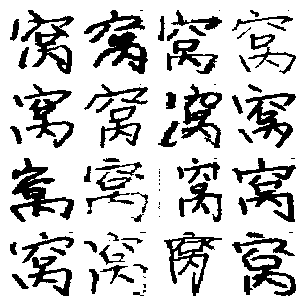 窝窝窝窝
窝窝窝窝
窝窝窝窝
窝窝窝窝